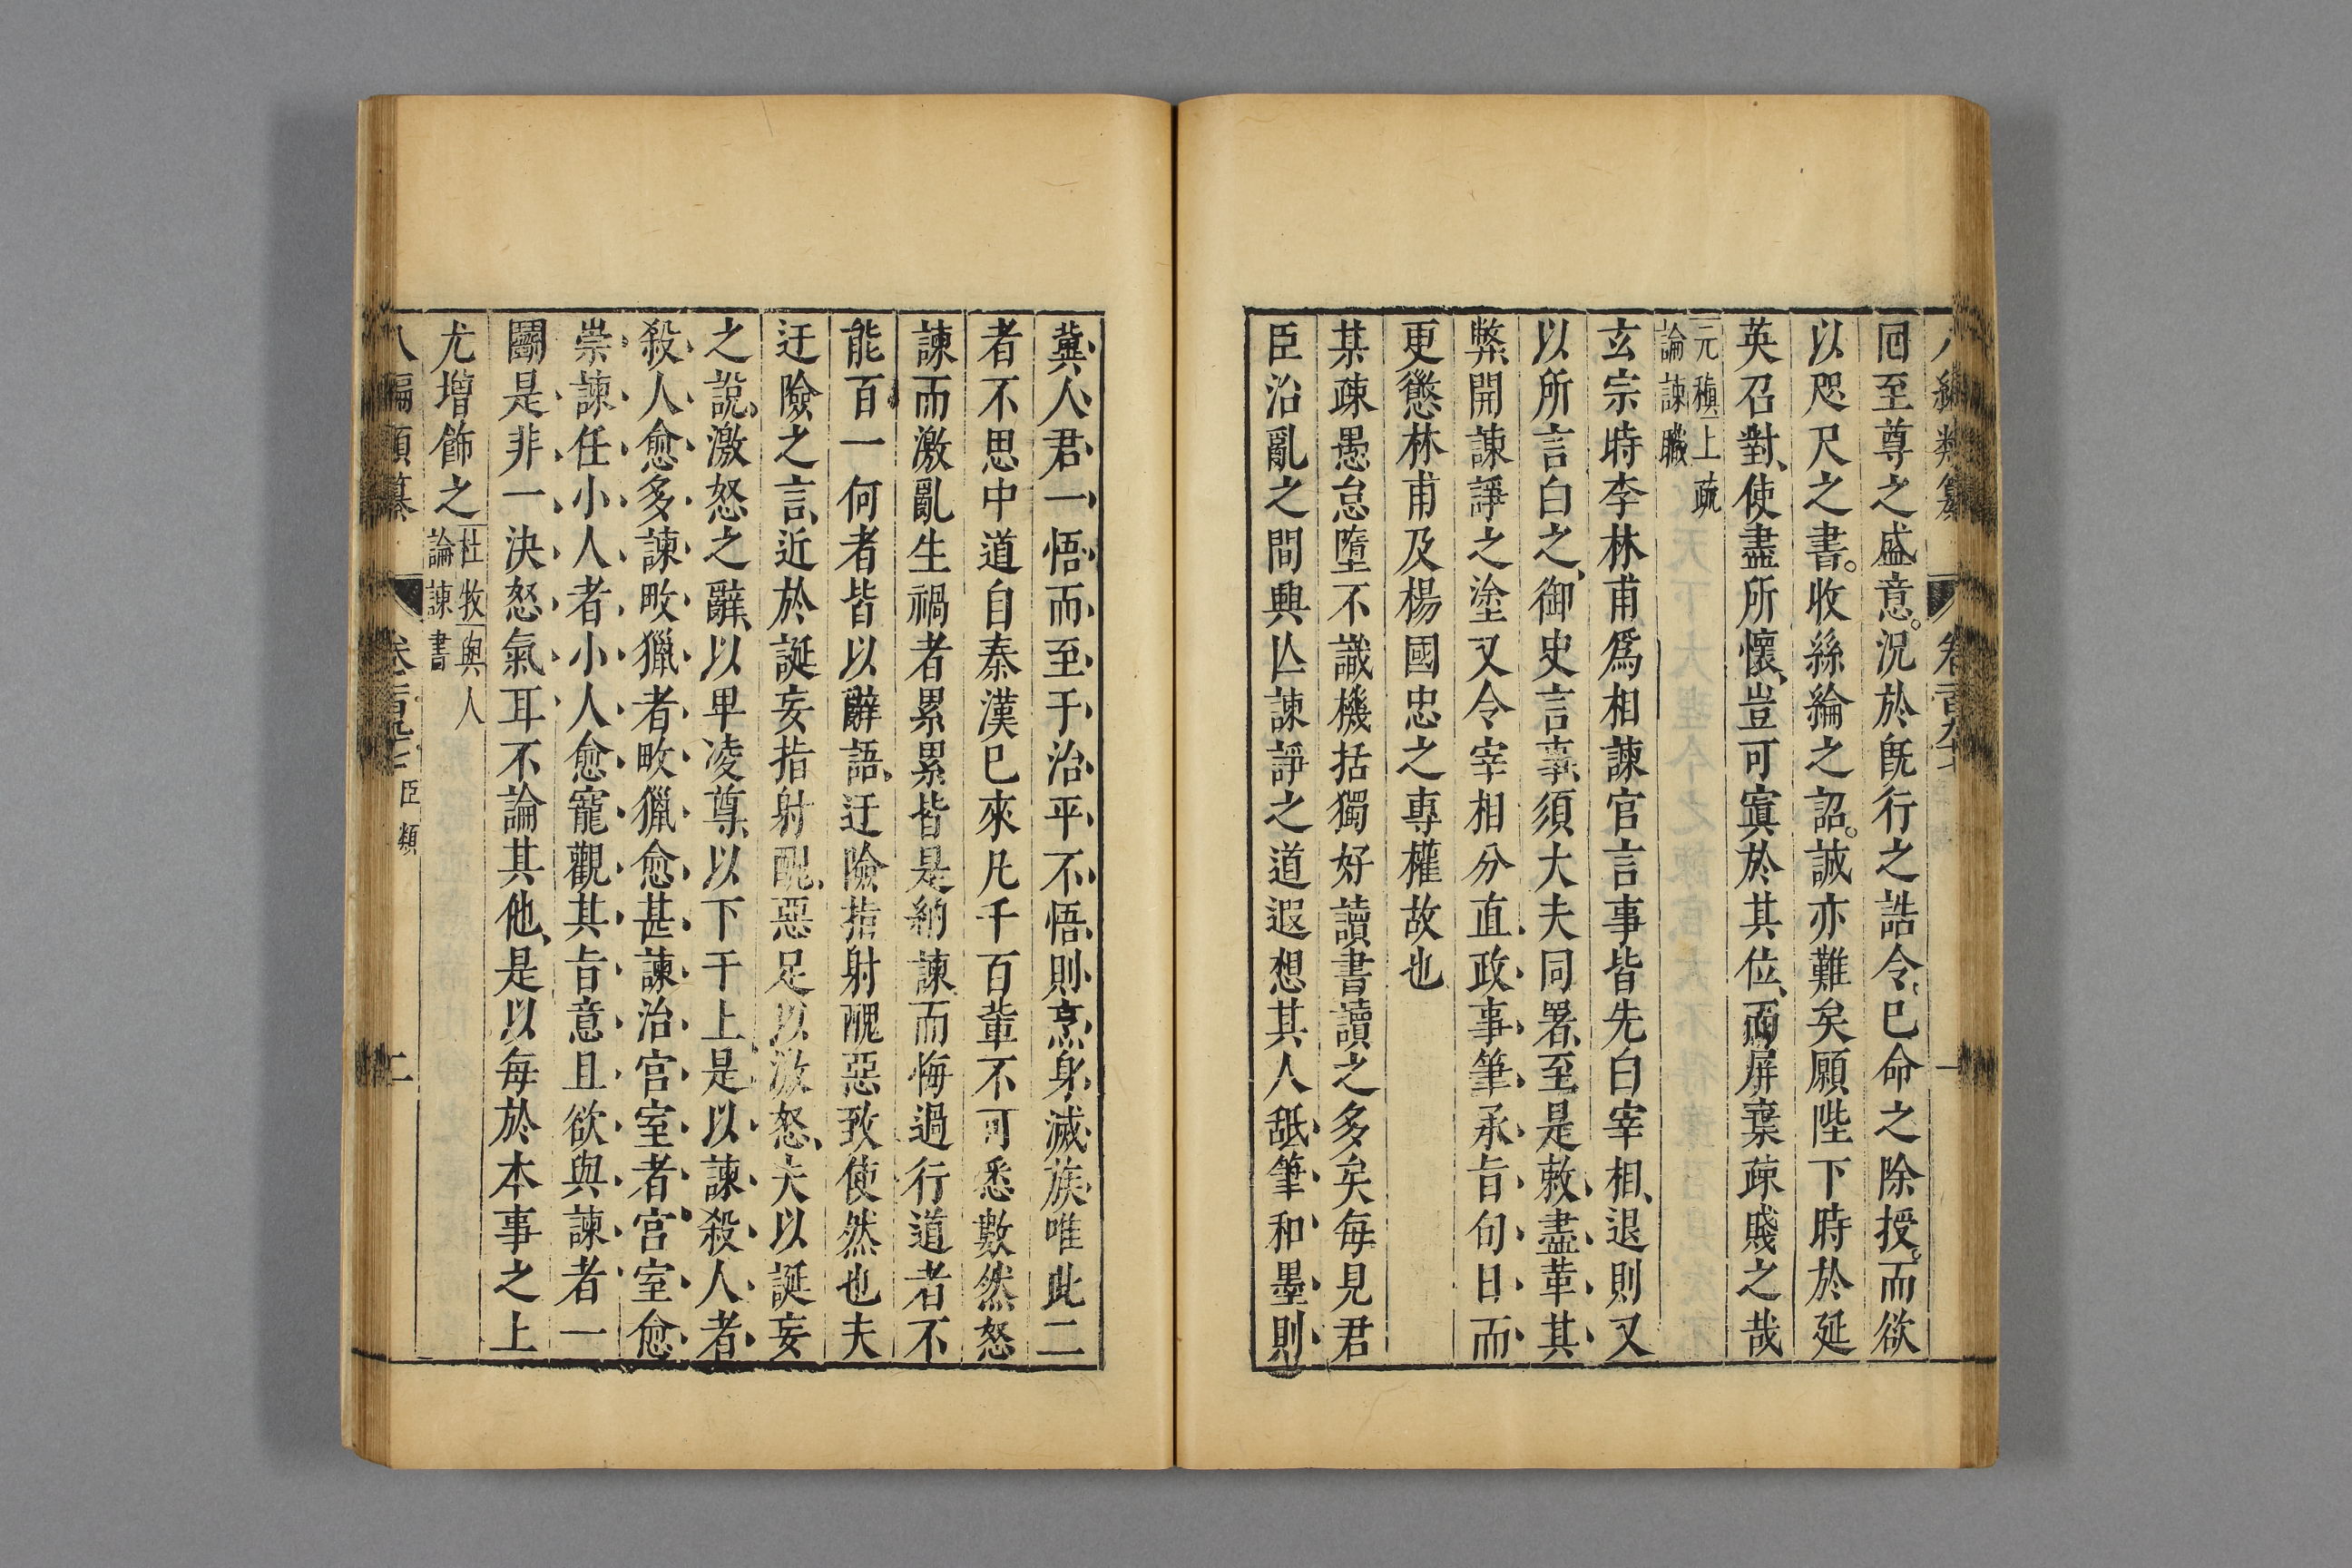 八編類纂 卷一百九十七 一
囘至尊之盛意。況於旣行之誥令、已命之除授、而欲
以咫尺之書。收絲綸之詔。誠亦難矣願陛下時於延
英召對、使盡所懷、豈可寘於其位、而屏棄疎賤之哉
元稹上疏
論諫職
玄宗時李林甫爲相諫官言事皆先白宰相、退則又
以所言白之、御史言事、須大夫同署、至是敕盡革其
弊、開諫諍之塗又令宰相分直政事筆承旨旬日而
更懲林甫及楊國忠之專權故也
某疎愚怠墮不識機括獨好讀書讀之多矣每見君
臣治亂之間興亾諫諍之道遐想其人舐筆和墨則
冀人君一悟而至于治平不悟則烹身滅族唯此二
者不思中道自秦漢已來凡千百輩不可悉數然怒
諫而激亂生禍者累累皆是納諫而悔過行道者不
能百一何者皆以辭語、迂險指射醜惡致使然也夫
迂險之言、近於誕妄指射醜惡足以激怒、夫以誕妄
之說、激怒之辭、以卑凌尊、以下干上、是以諫殺人者
殺人愈多諫畋獵者畋獵愈甚諫治宮室者宮室愈
崇諫任小人者小人愈寵觀其旨意且欲與諫者一
鬭是非一決怒氣耳不論其他、是以每於本事之上
尤增飾之
杜牧與人
論諫書
八編類纂 卷一百九十七 臣類 二